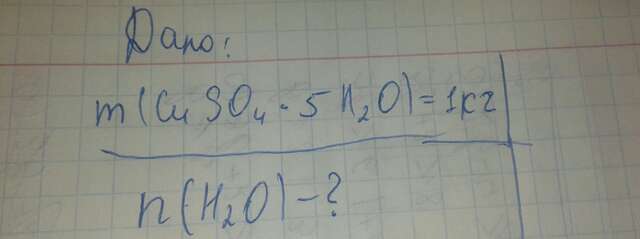 Дано:
m(CuSO₄·5H₂O)=1кг
n(H₂O)-?